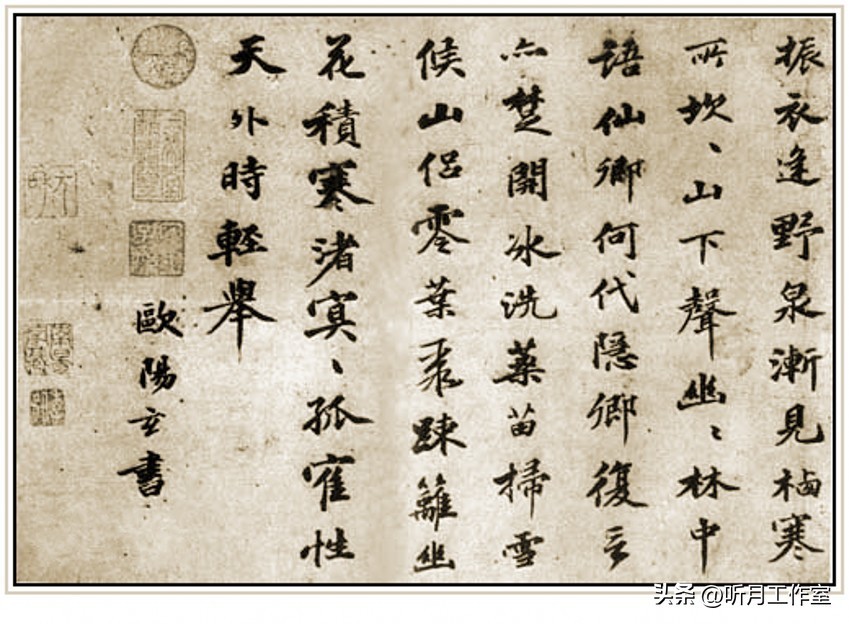 振衣逢野泉漸見栖寒
所坎、山下聲幽、林中
語仙卿何代隱鄉復言
亦楚開冰洗藥苗掃雪
候山侶零葉聚疎籬幽
花積寒渚冥、孤隺性
天外時輕舉
歐陽玄書
头条 @听月工作室